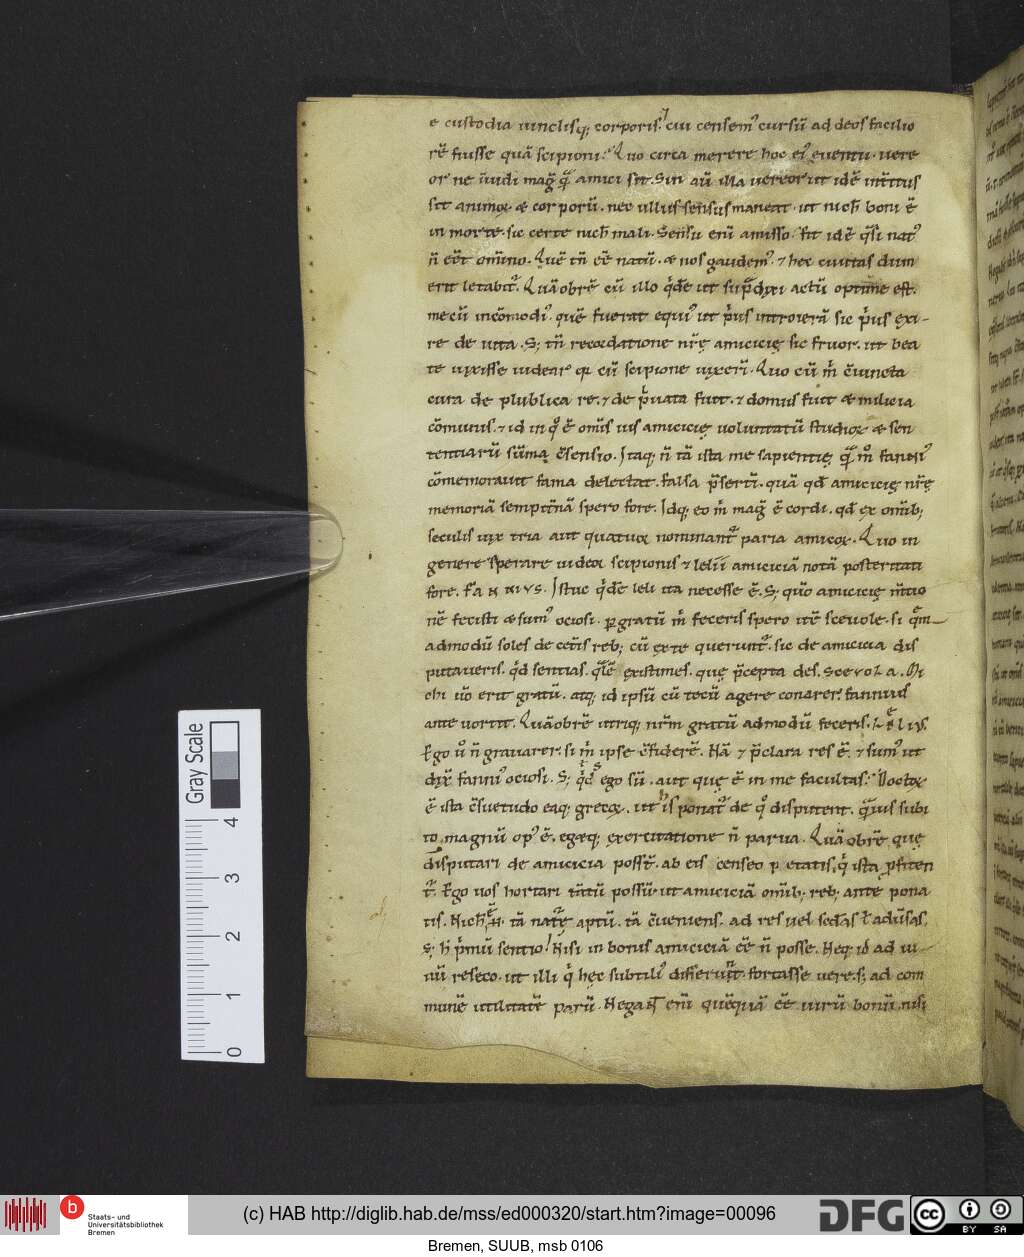 e custodia uinclisq; corporis? cui censem᷒ cursū ad deos facilio
rē fuisse quā scipioni? Quo circa merere hoc ei᷒ euentu. uere
or ne inuidi mag̅ q̅ amici sit. Sin aū illa uereor ut idē int̄itus
sit animoꝝ & corporū. nec ullus sensus maneat. ut nich̄ boni ē
in morte. sic certe nich̄ mali. Sensu enī amisso. fit idē q̄si nat᷒
n̄ eēt om̄ino. Quē tn̄ eē natū. & nos gaudem᷒. ⁊ hec ciuitas dum
erit letabit᷑. Quāobrē cū illo q̇dē ut sup̄dixi actū optime est.
mecū incōmodi᷒. quē fuerat equi᷒ ut ṗus introierā sic ṗus exi-
re de uita. S; tn̄ recordatione nr̄ę amicicię sic fruor. ut bea
te uixisse uidear᷒ qꝛ cū scipione uixerī. Quo cū ṁ c̄iuncta
cura de plublica re. ⁊ de ṗuata fuit. ⁊ domus fuit & milicia
cōmunis. ⁊ id in q̊ ē om̄is uis amicicię uoluntatū studioꝝ & sen
tentiarū sūma c̄sensio. Itaq; n̄ tā ista me sapientię q̅ m̊ fanni᷒
cōmemorauit fama delectat. falsa p̄sertī. quā qd̄ amicicię nr̄ę
memoriā sempit̄nā spero fore. Idq; eo ṁ mag̅ ē cordi. qd̄ ex omīb;
seculis uix tria aut quatuor nominant᷑ paria amicoꝝ. Quo in
genere sperare uideor scipionis ⁊ lelii amiciciā notā posteritati
fore. FANNIVS. Istuc q̇dē leli ita necesse ē. S; quō amicicię m̄tio
nē fecisti & sum᷒ ociosi. ꝑgratū ṁ feceris spero itē sceuole. si q̄m
admodū soles de cet̄is reb; cū ex te querunt᷑. sic de amicicia dis
putaueris. q̇d sentias. q̄lē existimes. quę p̄cepta des. SCEVOLA. Mi
chi u̇o erit gratū. atq; id ipsū cū tecū agere conarer. fannius
ante uortit. Quāobrē utriq; nrm̄ gratū admodū feceris. LELIVS.
Ego u̇ n̄ grauarer. si ṁ ipse c̄fiderē. Nā ⁊ p̄clara res ē. ⁊ sum᷒ ut
dix̄ fanni᷒ ociosi. S; q̇s ego sū. aut quę ē in me facultas? Doctoꝝ
ē ista c̄suetudo eaq; grecoꝝ. ut his ponat᷑ de q̊ disputent. q̄uis subi
to. magnū op᷒ ē. egetq; exercitatione n̄ parua. Quāobrē quę
disputari de amicicia possт̄. ab eis censeo petatis. q̇ ista p̄fiten
t᷑. Ego uos hortari tātū possū. ut amiciciā omīb; reb; ante pona
tis. Nich̄ ē n̄. tā nat᷑ę aptū. tā c̄ueniens. ad res uel secdas ł aduersas.
S; h̄ ṗmū sentio! Nisi in bonis amiciciā eē n̄ posse. Neq; id ad ui
uū reseco. ut illi q̇ hęc subtili᷒ disserunt. fortasse uere. s; ad com
munē utilitatē parū. Negant enī quēquā eē uirū bonū. nisi
Gray Scale
4
3
2
1
0
b
Staats- und
Universitätsbibliothek
Bremen
(c) HAB http://diglib.hab.de/mss/ed000320/start.htm?image=00096
DFG
cc
BY SA
Bremen, SUUB, msb 0106